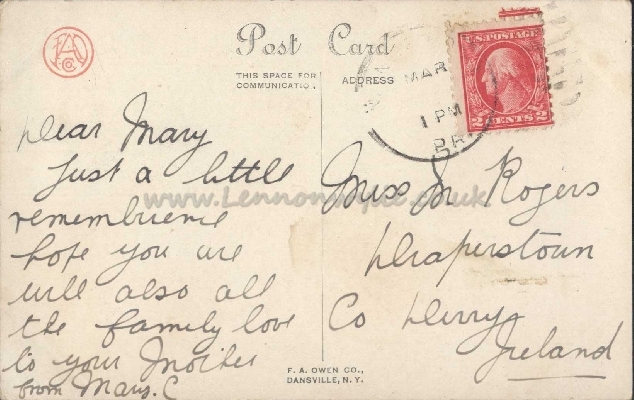 FAO Co
Post Card
THIS SPACE FOR COMMUNICATION.
ADDRESS
MAR
1 PM
U.S. POSTAGE
2 CENTS 2
Dear Mary
Just a little
remembrience
hope you are
well also all
the family love
to your Mother
from Mary. C
Miss M Rogers
Draperstown
Co Derry
Ireland
F. A. OWEN CO.,
DANSVILLE, N. Y.